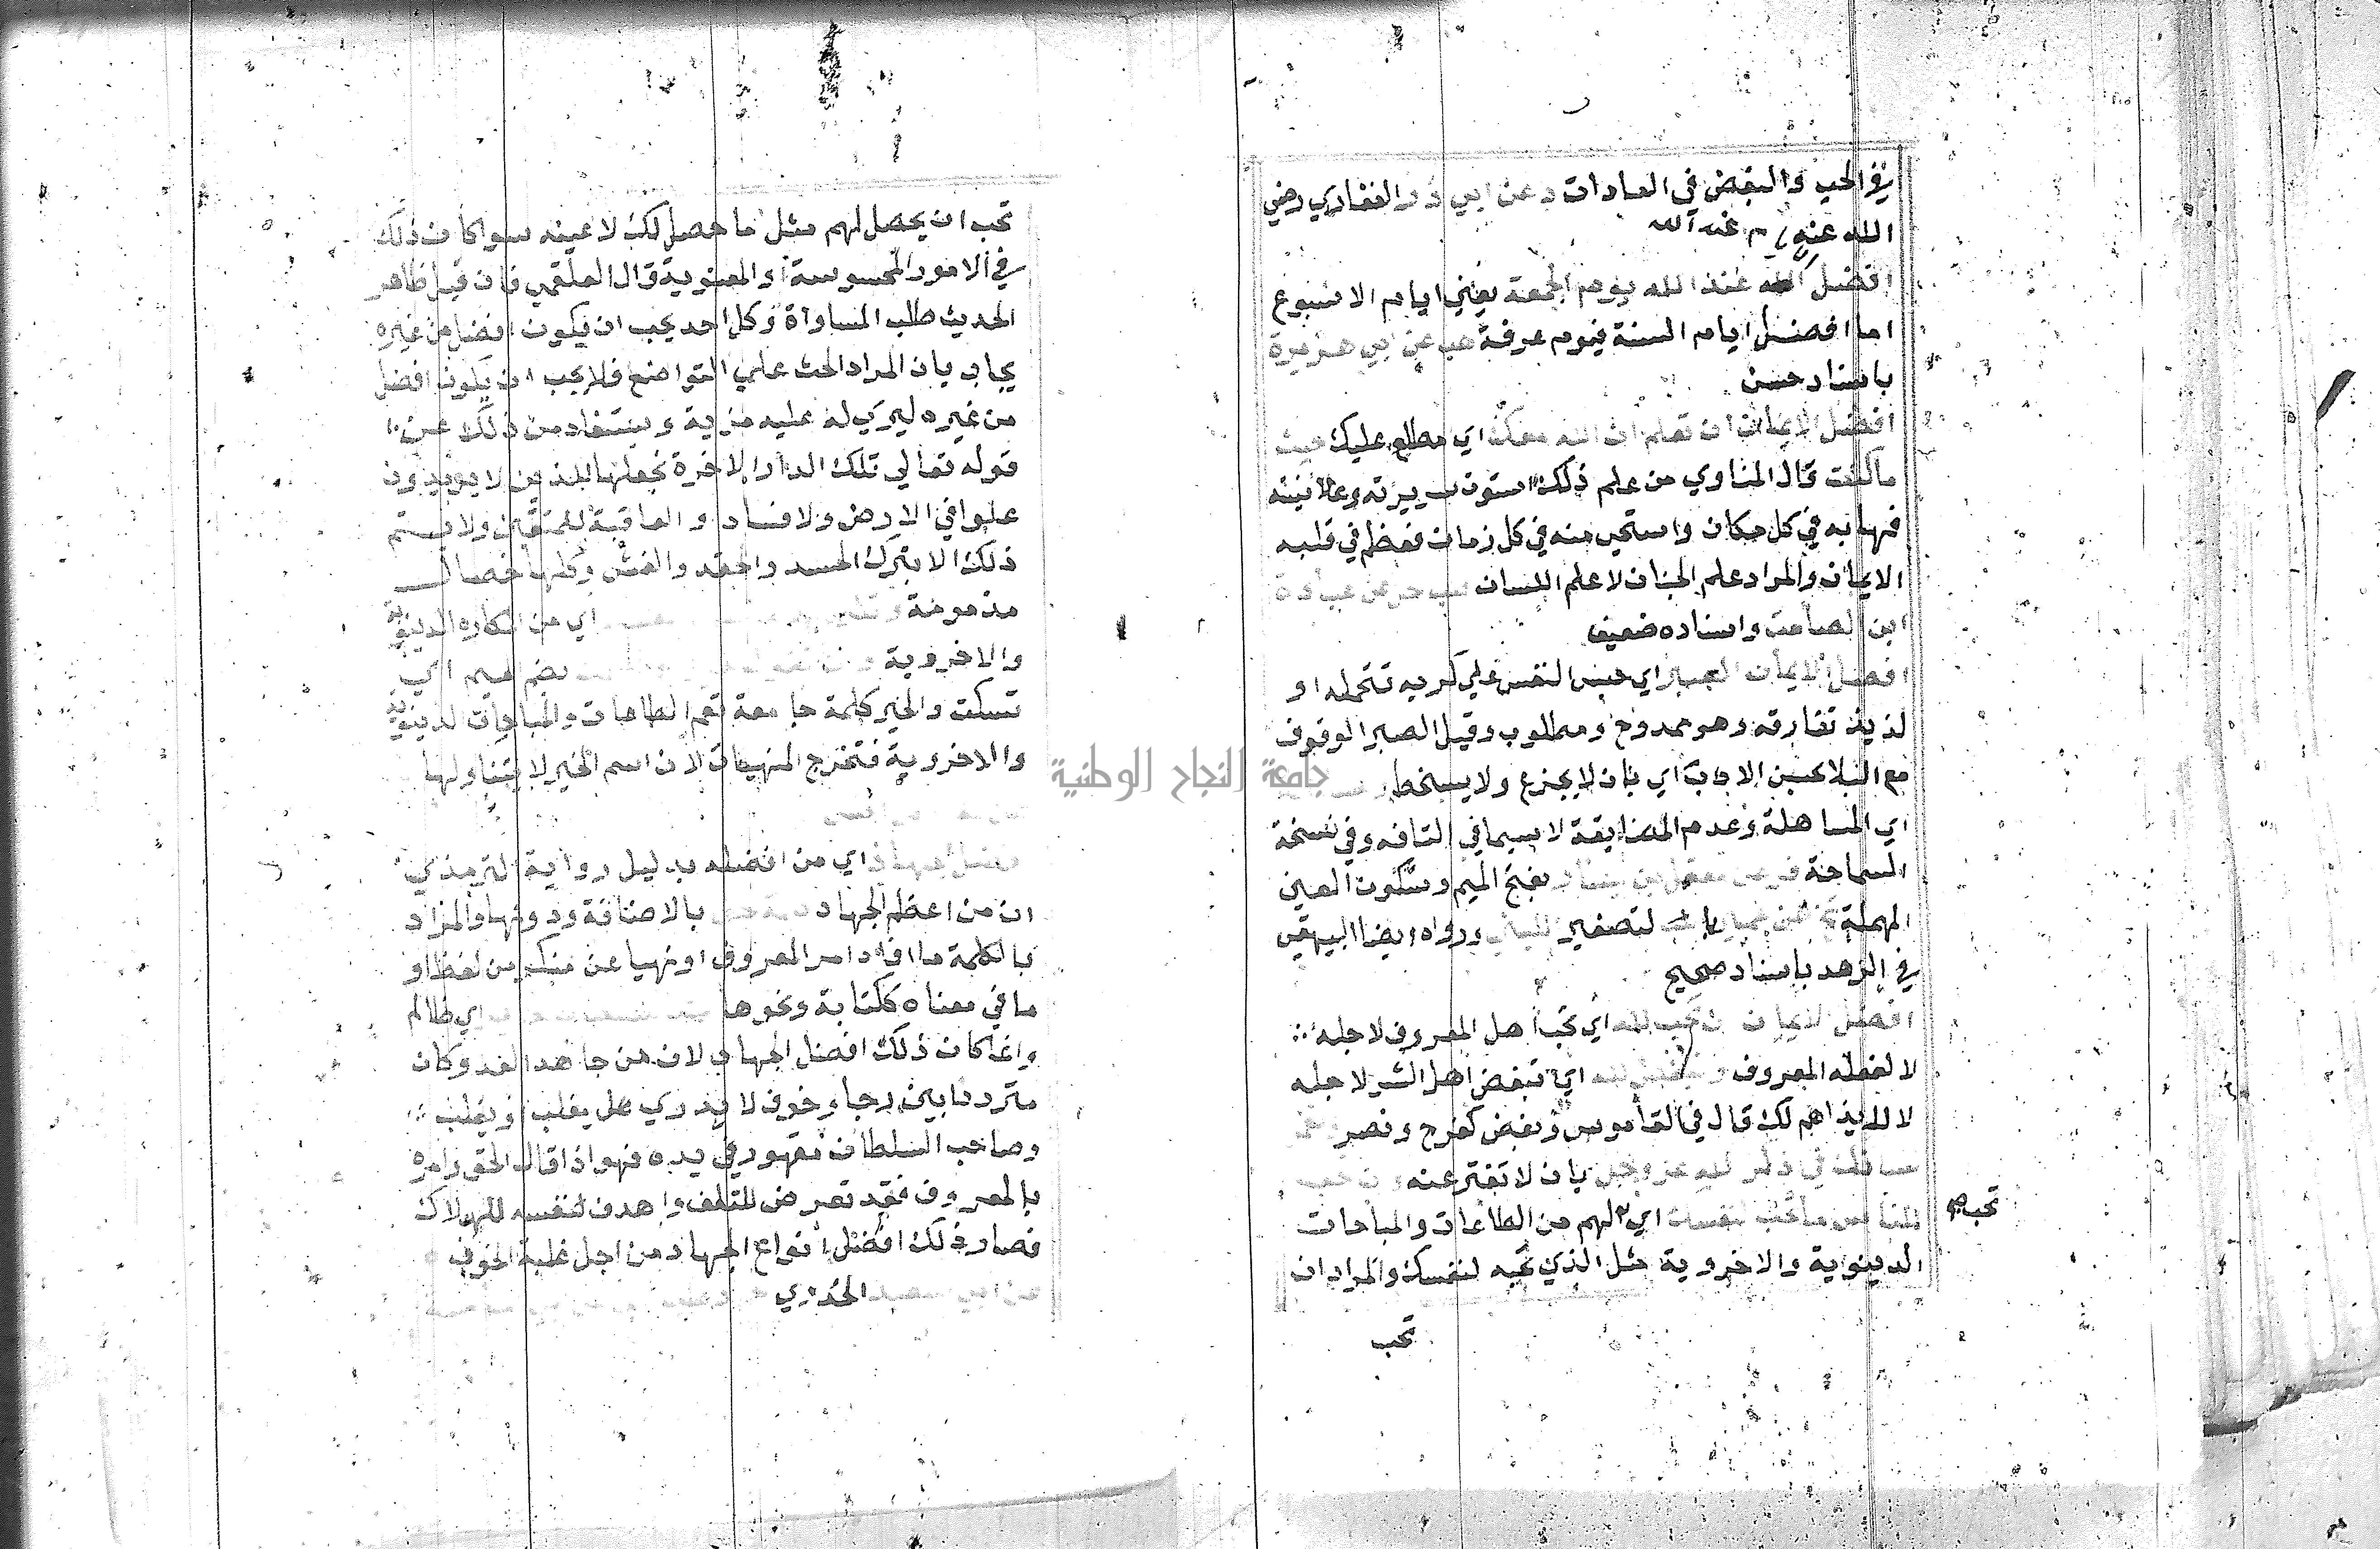 في الحب والبغض في العادات د عن ابي ذر الغفاري رضي
الله عنه
افضل عند الله يوم الجمعة يعني ايام الاسبوع
اما افضل ايام السنة فيوم عرفة هب عن ابي هريرة
باسناد حسن
افضل الايمان ان تعلم ان الله معك اي مطلع عليك حيث
ما كنت قال المناوي من علم ذلك استوت سريرته وعلانيته
فهابه في كل مكان واستحي منه في كل زمان فعظم في قلبه
الايمان والمراد علم الجنان لا علم اللسان طب حل عن عبادة
ابن الصامت واسناده ضعيف
افضل الايمان الصبر اي حبس النفس علي كريه تتحمله او
لذيذ تفارقه وهو ممدوح ومطلوب وقيل الصبر الوقوف
مع البلا بحسن الادب اي بان لا يجزع ولا يسخط
اي المساهلة وعدم المضايقة لا سيما في التافه وفي نسخة
السماحة فر عن معقل بن يسار بفتح الميم وسكون العين
المهملة تخ عن عمير بالتصغير الليثي ورواه ايضا البيهقي
في الزهد باسناد صحيح
افضل الايمان ان تحب لله اي تحب اهل المعروف لاجله
لا لفعله المعروف وتبغض لله اي تبغض اهل الشر لاجله
لا لايذاهم لك قال في القاموس وبغض كفرح ونصر
لسانك في ذكر الله عز وجل بان لا تفتر عنه وان تحب
للناس ما تحب لنفسك اي لهم من الطاعات والمباحات
تحب
الدينوية والاخروية مثل الذي تحبه لنفسك والمراد ان
تحب
تحب ان يحصل لهم مثل ما حصل لك لا عينه سوا كان ذلك
في الامور المحسوسة او المعنوية قال العلقمي فان قيل ظاهر
الحديث طلب المساواة وكل احد يحب ان يكون افضل من غيره
يجاب بان المراد الحث علي التواضع فلا يحب ان يكون افضل
من غيره ليري له عليه مزية ويستفاد من ذلك عن
قوله تعالي تلك الدار الاخرة نجعلها للذين لا يريدون
علوا في الارض ولا فسادا والعاقبة للمتقين ولا يتم
ذلك الا بترك الحسد والحقد والغش وكلها خصال
مذمومة اي من المكاره الدينوية
والاخروية بضم الميم اي
تسكت والخير كلمة جامعة تعم الطاعات والمباحات الدينوية
والاخروية فتخرج المنهيات لان اسم الخير لا يتناولها
افضل الجهاد اي من افضله بدليل رواية الترمذي
ان من اعظم الجهاد كلمة حق بالاضافة ودونها والمراد
بالكلمة ما افاد امر المعروف او نهيا عن منكر من لفظ او
ما في معناه ككتابة ونحوها اي ظالم
وانما كان ذلك افضل الجهاد لان من جاهد العدو كان
مترددا بين رجا وخوف لا يدري هل يغلب او يغلب
وصاحب السلطان مقهور في يده فهو اذا قال الحق وامره
بالمعروف فقد تعرض للتلف واهدف نفسه للهلاك
فصار ذلك افضل انواع الجهاد من اجل غلبة الخوف
عن ابي سعيد الخدري
جامعة النجاح الوطنية